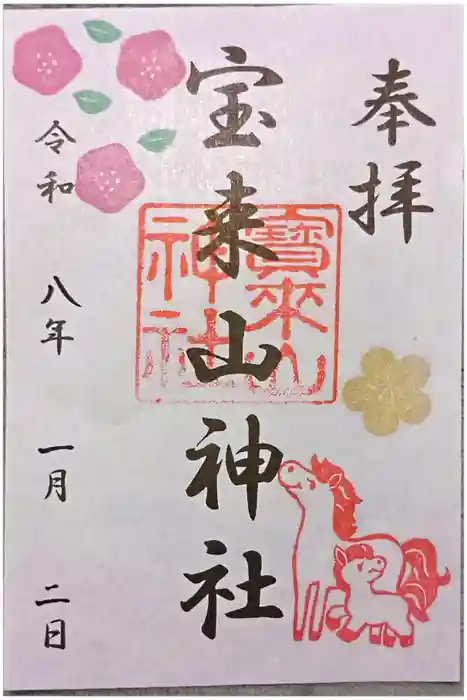 奉拝
宝来山神社
寳来山
神社
令和八年一月二日